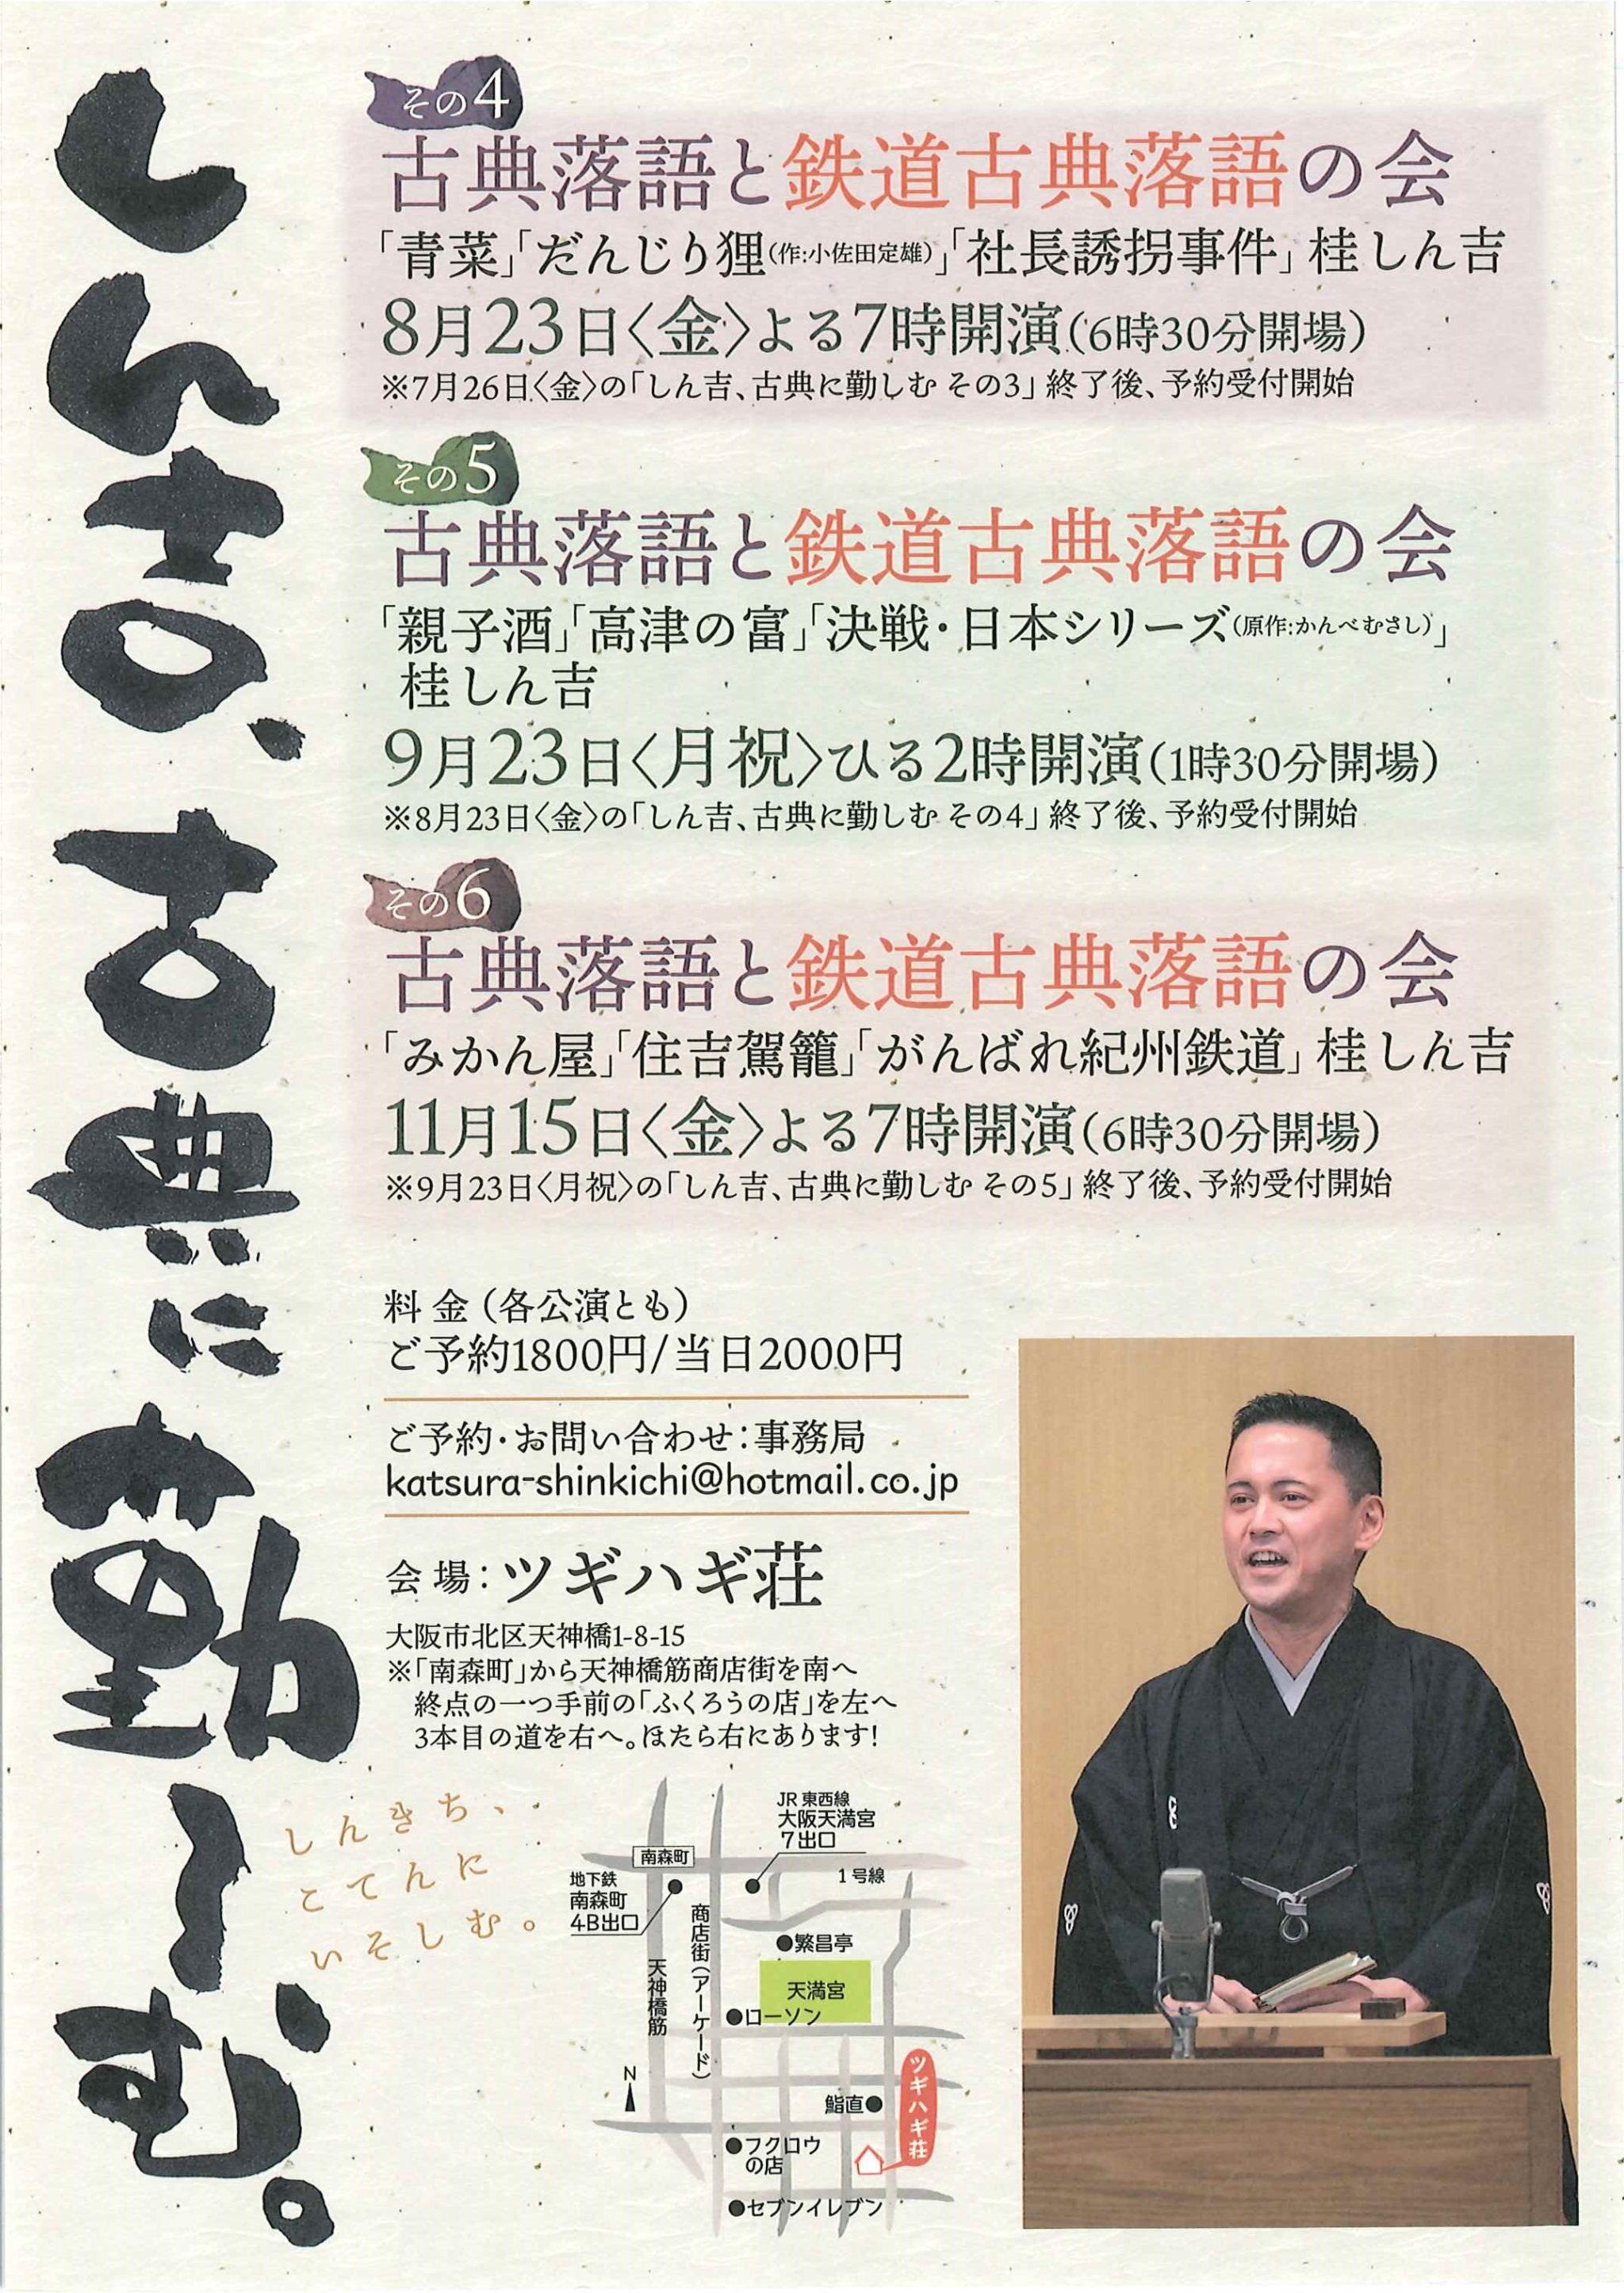 しん吉、古典に勤しむ。
その4
古典落語と鉄道古典落語の会
「青菜」「だんじり狸(作:小佐田定雄)」「社長誘拐事件」桂しん吉
8月23日〈金〉よる7時開演(6時30分開場)
※7月26日〈金〉の「しん吉、古典に勤しむ その3」終了後、予約受付開始
その5
古典落語と鉄道古典落語の会
「親子酒」「高津の富」「決戦・日本シリーズ(原作:かんべむさし)」
桂しん吉
9月23日〈月祝〉ひる2時開演(1時30分開場)
※8月23日〈金〉の「しん吉、古典に勤しむ その4」終了後、予約受付開始
その6
古典落語と鉄道古典落語の会
「みかん屋」「住吉駕籠」「がんばれ紀州鉄道」桂しん吉
11月15日〈金〉よる7時開演(6時30分開場)
※9月23日〈月祝〉の「しん吉、古典に勤しむ その5」終了後、予約受付開始
料金(各公演とも)
ご予約1800円/当日2000円
ご予約・お問い合わせ:事務局
katsura-shinkichi@hotmail.co.jp
会場:ツギハギ荘
大阪市北区天神橋1-8-15
※「南森町」から天神橋筋商店街を南へ
終点の一つ手前の「ふくろうの店」を左へ
3本目の道を右へ。ほたら右にあります!
しんきち、
こてんに
いそしむ。
JR東西線
大阪天満宮
7出口
南森町
1号線
地下鉄
南森町
4B出口
商店街(アーケード)
天神橋筋
●繁昌亭
天満宮
●ローソン
N
鮨直●
ツギハギ荘
●フクロウ
の店
●セブンイレブン